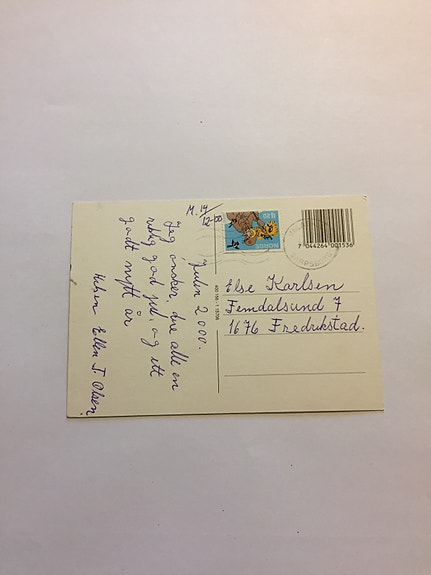 M. 14/12-00
Julen 2000.
Jeg ønsker dre alle en
riktig god jul, og ett
godt nytt år
Hilsen Ellen T. Olsen.
NORGE
7 044264 001536
Else Karlsen
Femdalsund 7
1676 Fredrikstad.